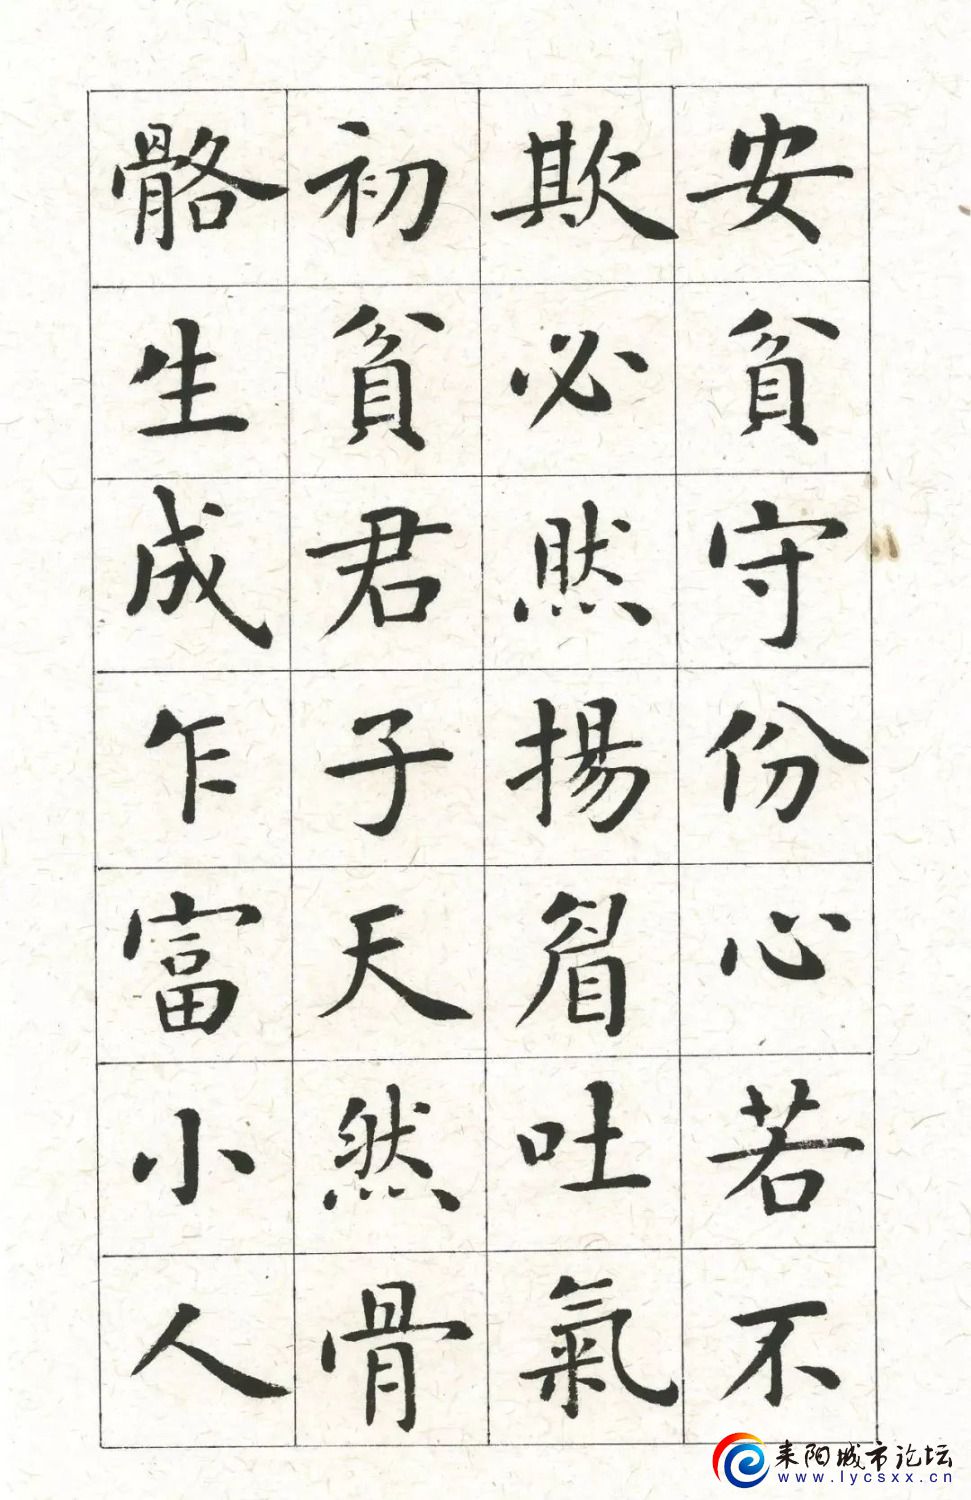 安貧守份心若不
欺必然揚眉吐氣
初貧君子天然骨
骼生成乍富小人
耒阳城市论坛
www.lycsxx.cn